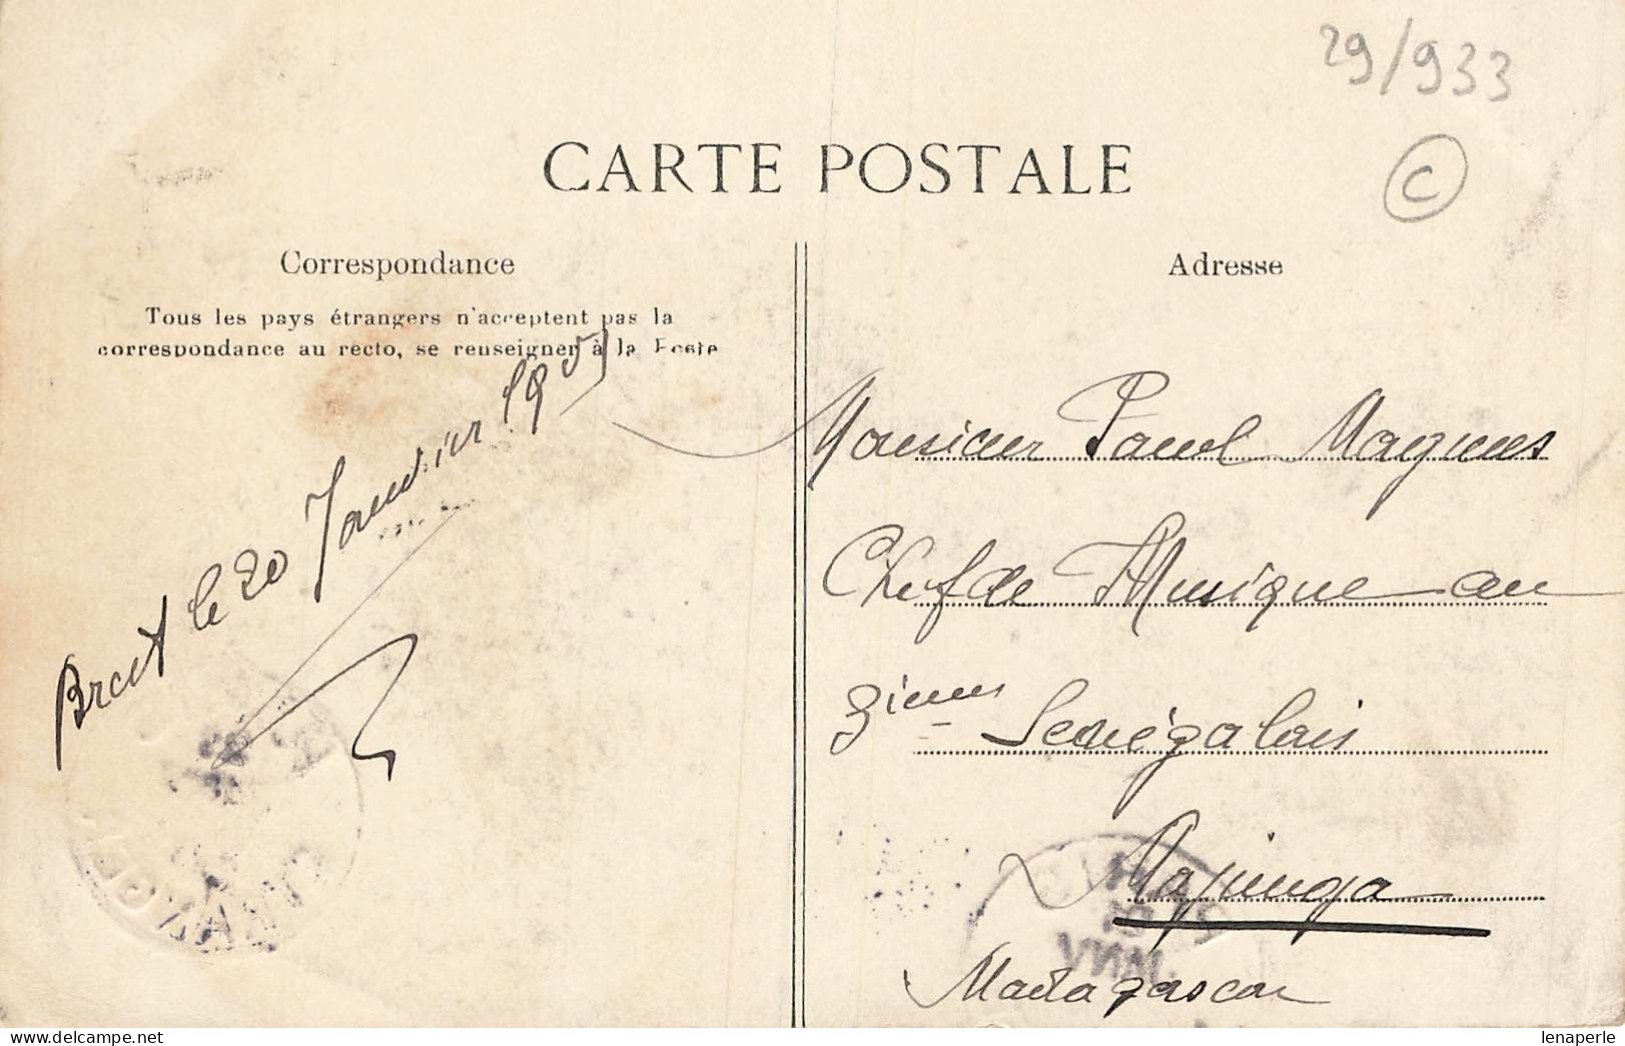 29/933
C
CARTE POSTALE
Correspondance
Tous les pays étrangers n'acceptent pas la
correspondance au recto, se renseigner à la Poste
Brest le 20 Janvier 1905
Adresse
Monsieur Paul Magnes
Chef de Musique au
3ième Sénégalais
Majunga
Madagascar
lenaperle